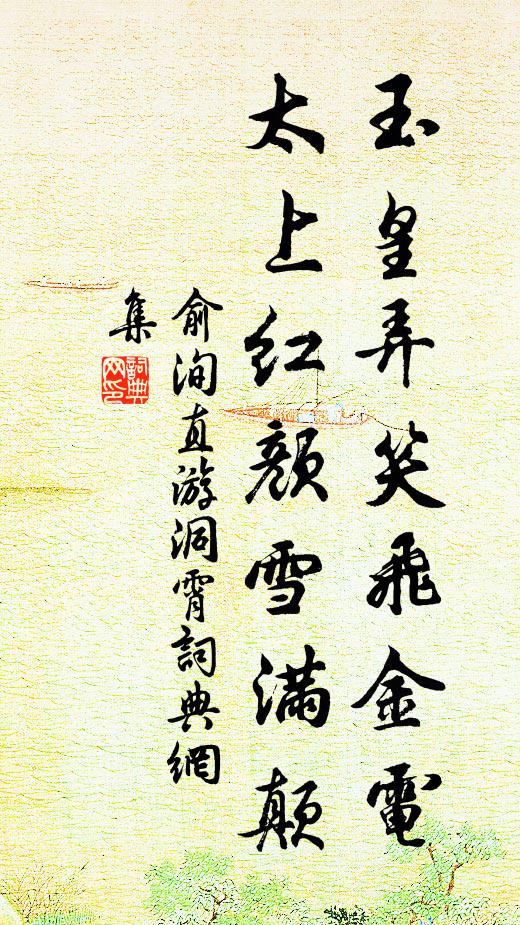 玉皇弄笑飛金電
太上红颜雪满颠
俞洵直游洞霄詞典網
集
詞典网印